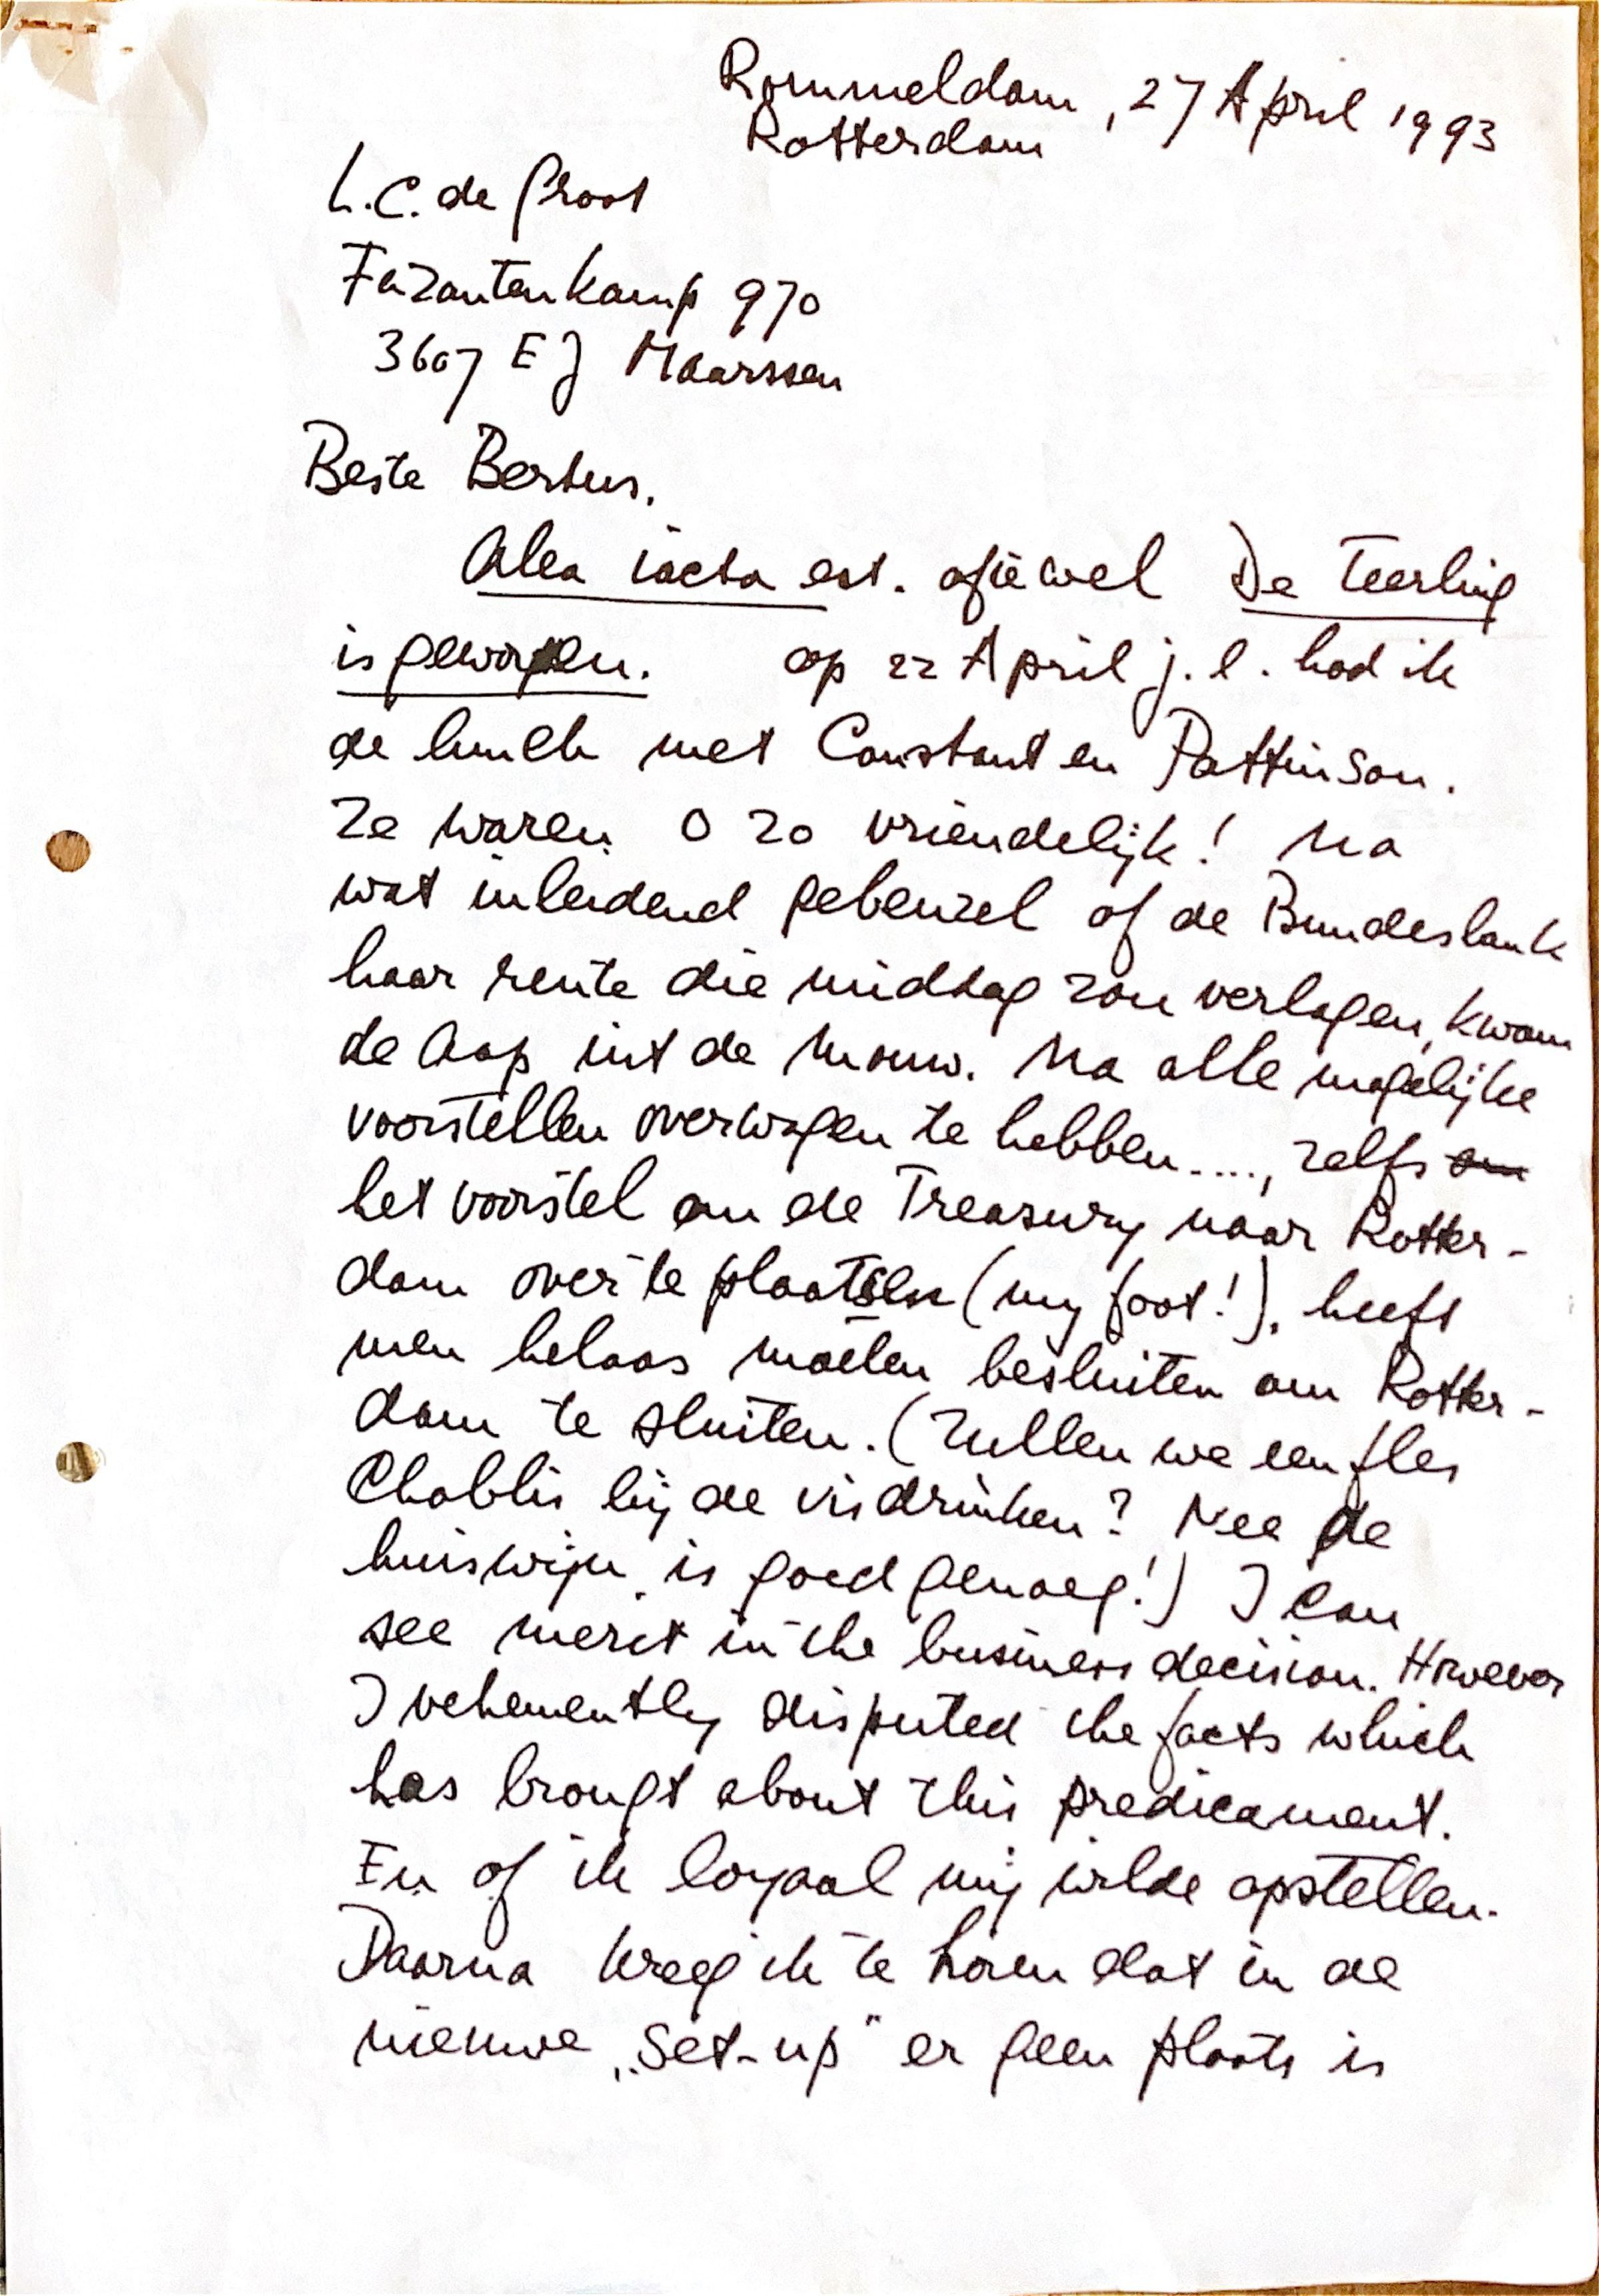 Rommeldam, 27 April 1993
Rotterdam
L.C. de Groot
Fazantenkamp 970
3607 EJ Maarssen
Beste Bertus.
Alea iacta est. ofiewel De Teerling
is geworpen. op 22 April j.l. had ik
de lunch met Constant en Pattinson.
Ze waren O zo vriendelijk! Na
wat inleidend gebeuzel of de Bundesbank
haar rente die middag zou verlagen, kwam
de aap uit de mouw. Na alle mogelijke
voorstellen overwogen te hebben...., zelfs om
het voorstel om de Treasury naar Rotter-
dam over te plaatsen (my foot!), heeft
men helaas moeten besluiten om Rotter-
dam te sluiten. (Zullen we een fles
Chablis bij de vis drinken? Nee de
huiswijn is goed genoeg!) I can
see merit in the business decision. However
I vehemently disputed the facts which
has brougt about this predicament.
En of ik loyaal mij wilde opstellen.
Daarna kreeg ik te horen dat in de
nieuwe „Set-up" er geen plaats is